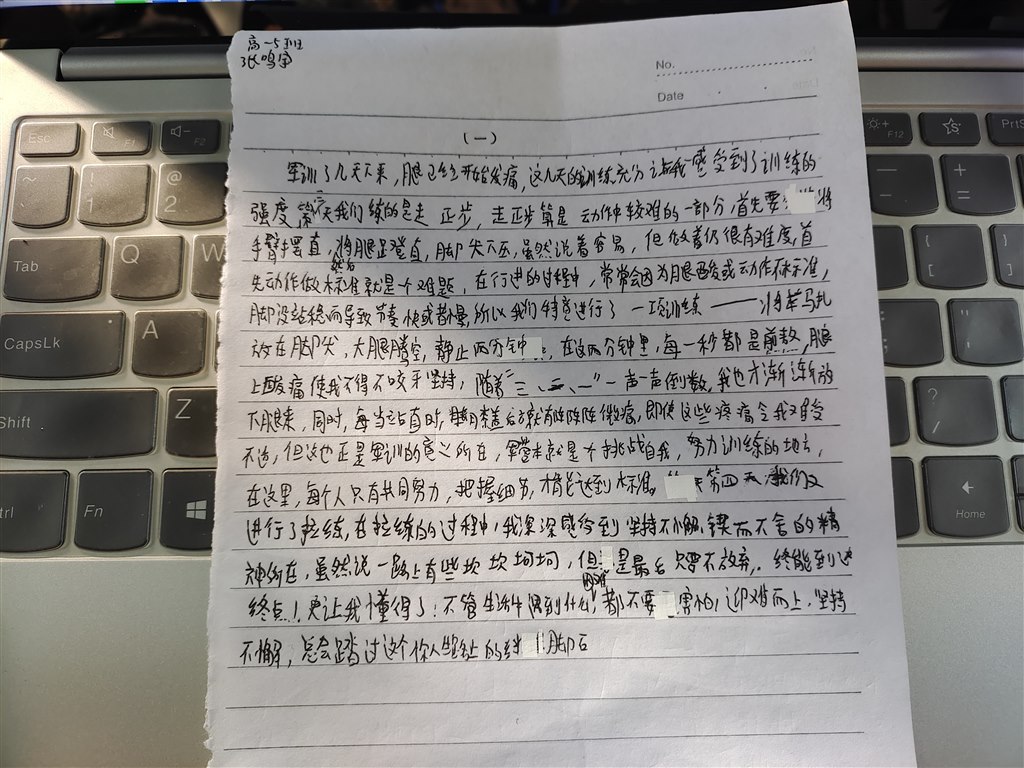 高一5班
张鸣宇
No.
Date
(一)
军训了几天下来，腿已经开始发痛，这几天的训练充分让我感受到了训练的
强度，第一天我们练的是走正步，走正步算是动作中较难的一部分，首先要将
手臂摆直，将腿足登直，脚尖下压，虽然说着容易，但做着仍很有难度，首
先动作做标准就是个难题，然后在行进的过程中，常常会因为腿酸或动作不标准，
脚没站稳而导致节奏快或者慢，所以我们特意进行了一项训练——将军马扎
放在脚尖，大腿腾空，静止两分钟，在这两分钟里，每一秒都是煎熬，腿
上酸痛使我不得不咬牙坚持，随着"三、二、一"一声声倒数，我也才渐渐放
下腿来，同时，每当站直时，膝盖后方就有阵阵微痛，即使这些疼痛令我难受
不适，但这也正是军训的意义所在，军营本就是个挑战自我，努力训练的地方，
在这里，每个人只有共同努力，把握细节，才能达到标准。第四天我们又
进行了拉练，在拉练的过程中，我深深感受到坚持不懈，锲而不舍的精
神所在，虽然说一路上有些坎坎坷坷，但是最后只要不放弃，终能到达
终点！更让我懂得了：不管生活中遇到什么困难，都不要害怕，迎难而上，坚持
不懈，总会踏过这个你人生上的绊脚石
Esc
F1
F2
F12
PrtS
Tab
Q
W
CapsLk
A
Shift
Z
Ctrl
Fn
Home